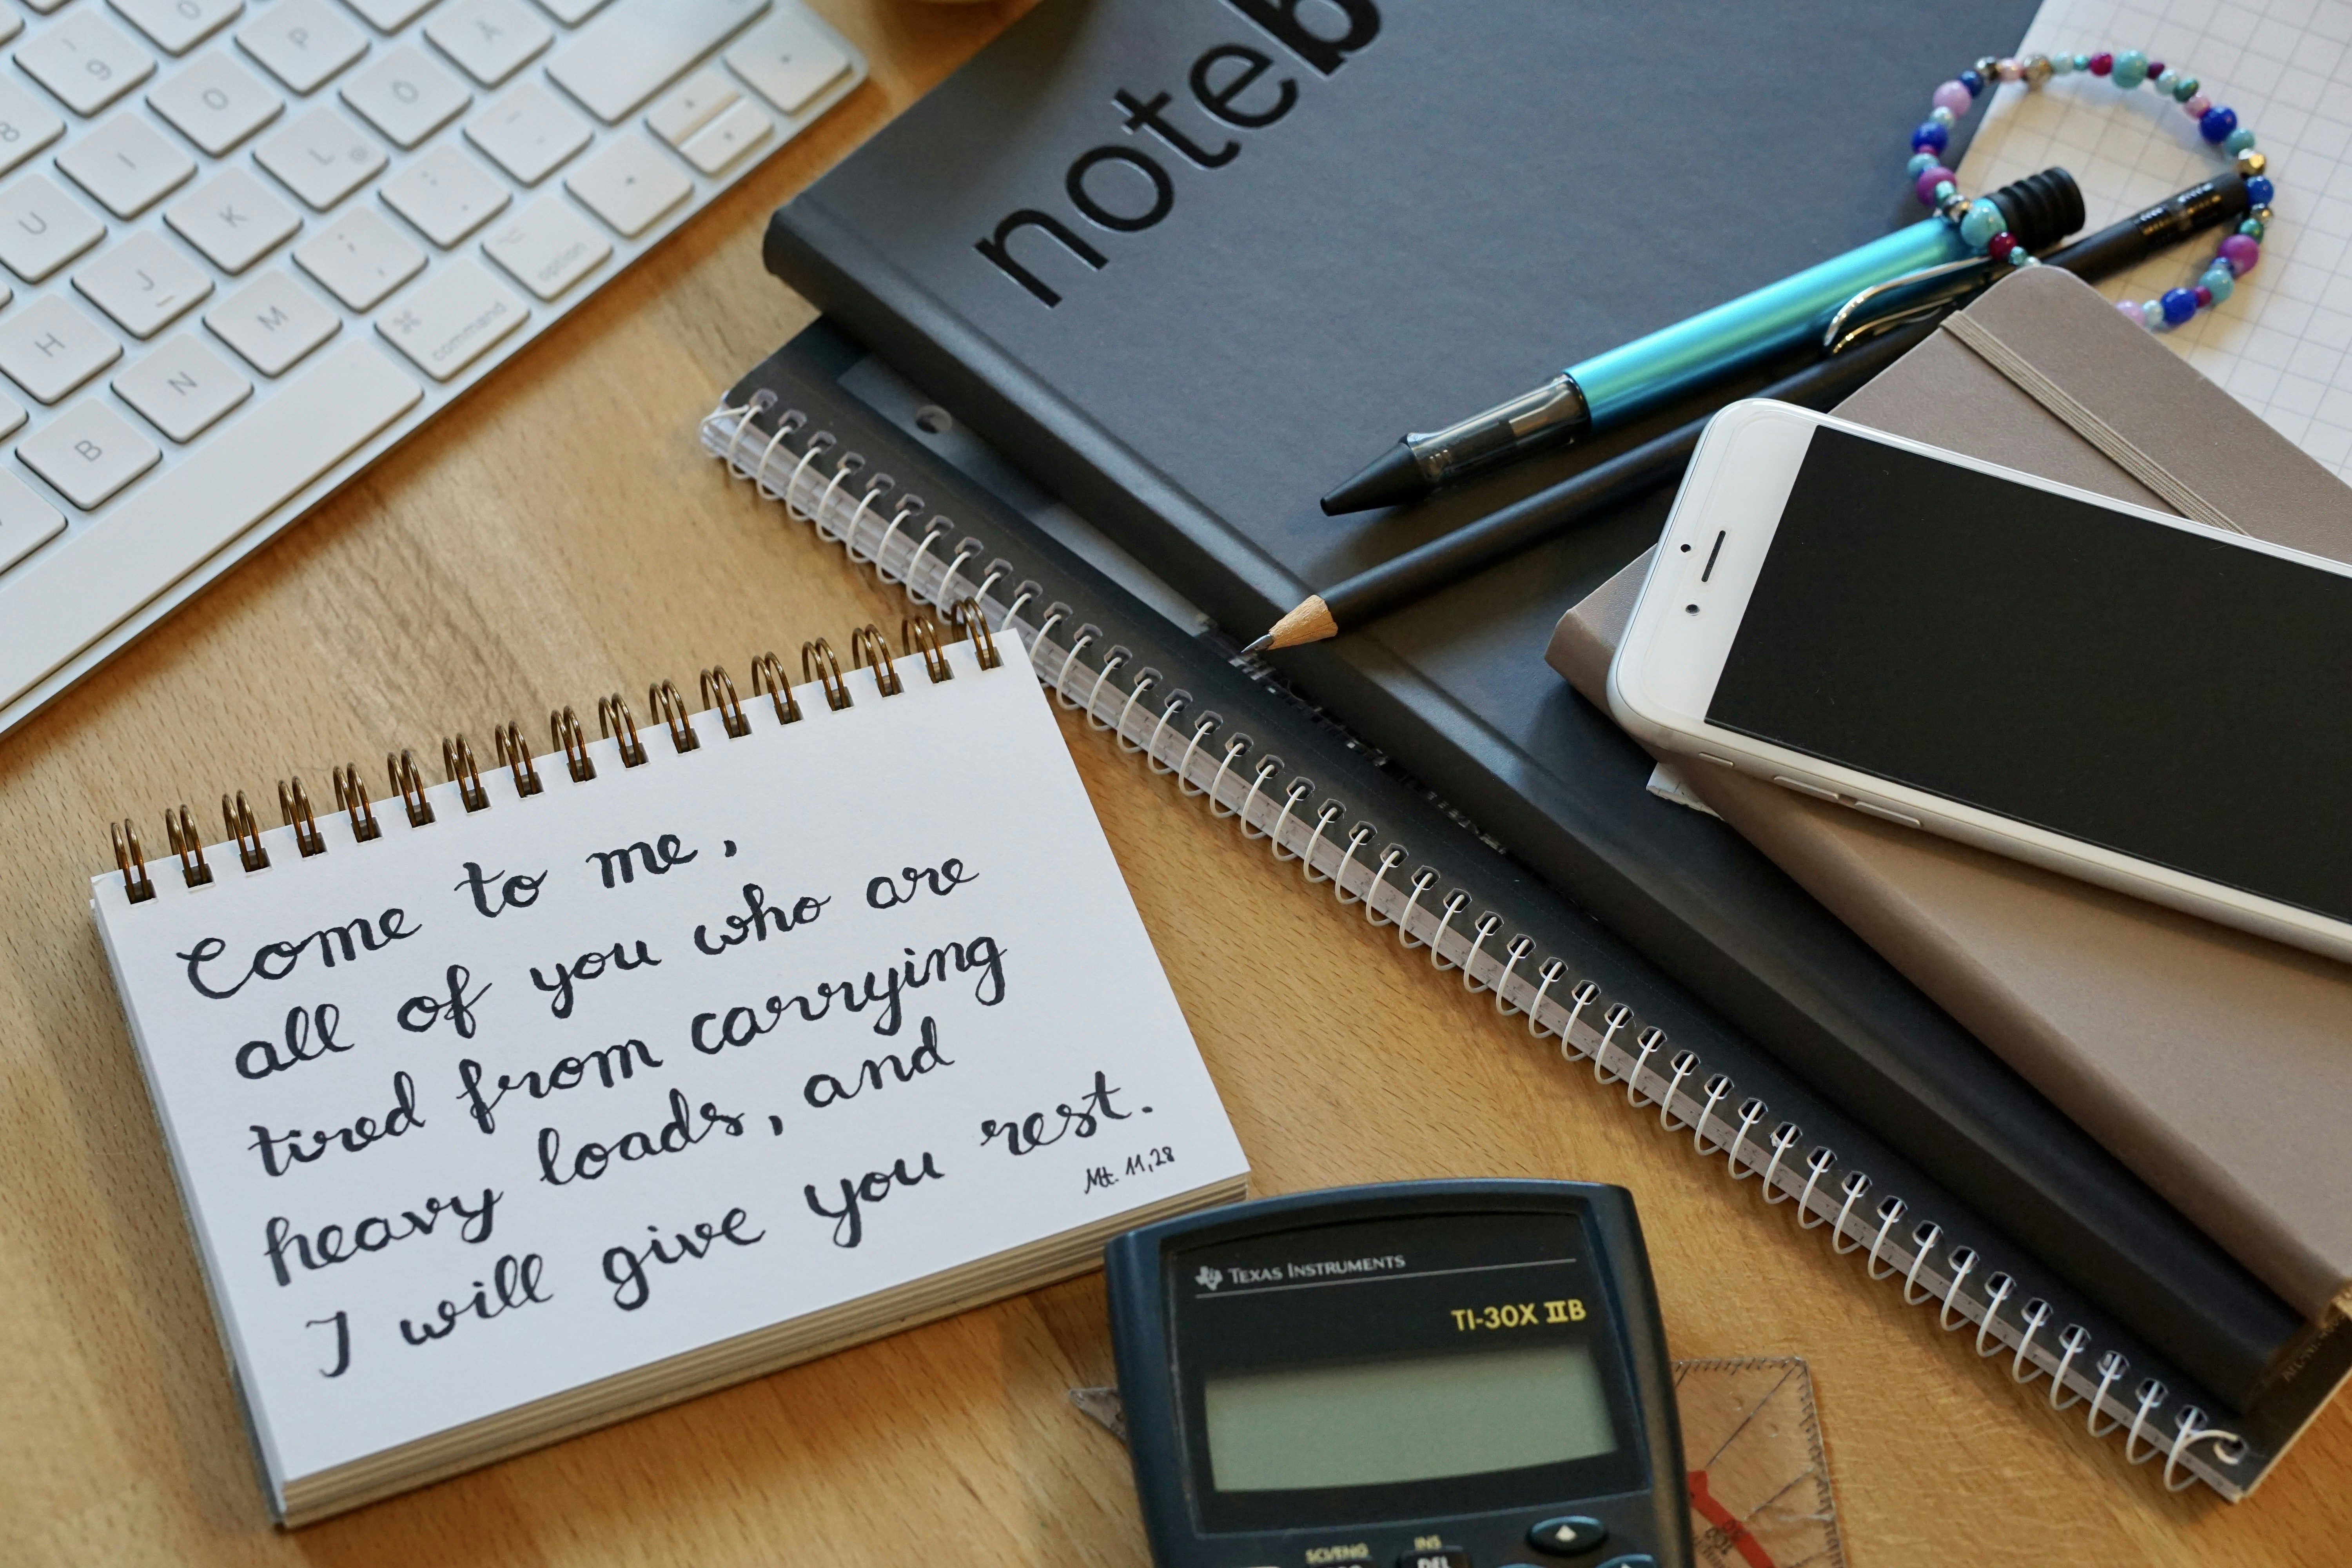 Come to me,
all of you who are
tired from carrying
heavy loads, and
I will give you rest.
Mt. 11,28
noteb
TEXAS INSTRUMENTS
TI-30X IIB
SCI/ENG
INS
DEL
9
O
P
Å
8
I
O
Ö
U
K
L
@
J
H
M
N
B
command
option